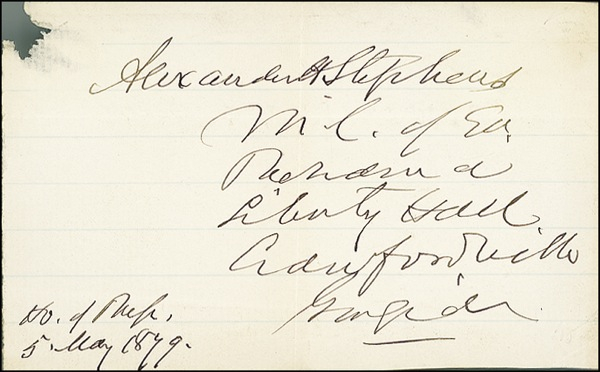 Alexander H Stephens
M. C. of Ga.
Liberty Hall
Crawfordville
Georgia
Ho. of Reps.
5. May 1879.